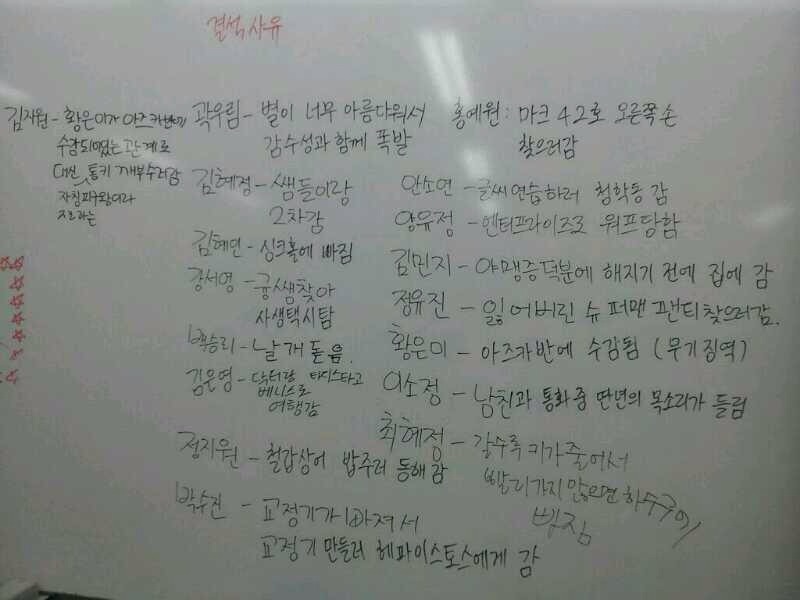 결석사유
김지원 - 황은미가 아즈카반에
수감되있는 관계로
대신 통키 깨부수러감
자칭피구왕이라
지으라는
곽우림 - 별이 너무 아름다워서
감수성과 함께 폭발
김혜정 - 쌤들이랑
2차감
김혜민 - 싱크홀에 빠짐
강서영 - 귱쌤찾아
사생택시탐
박승리 - 날개 돋음.
김은영 - 닥터랑 타디스타고
베니스로
여행감
정지원 - 철갑상어 밥주러 동해감
박수진 - 교정기가 빠져서
교정기 만들러 헤파이스토스에게 감
홍예원 : 마크 42호 오른쪽 손
찾으러감
안소연 - 글씨연습하러 청학동 감
양유정 - 엔터프라이즈로 워프당함
김민지 - 야맹증덕분에 해지기 전에 집에 감
정유진 - 잃어버린 슈퍼맨 빤티찾으러감.
황은미 - 아즈카반에 수감됨 (무기징역)
이소정 - 남친과 통화중 딴년의 목소리가 들림
최혜정 - 갈수록 키가 줄어서
빨리가지 않으면 하수구에
빠짐